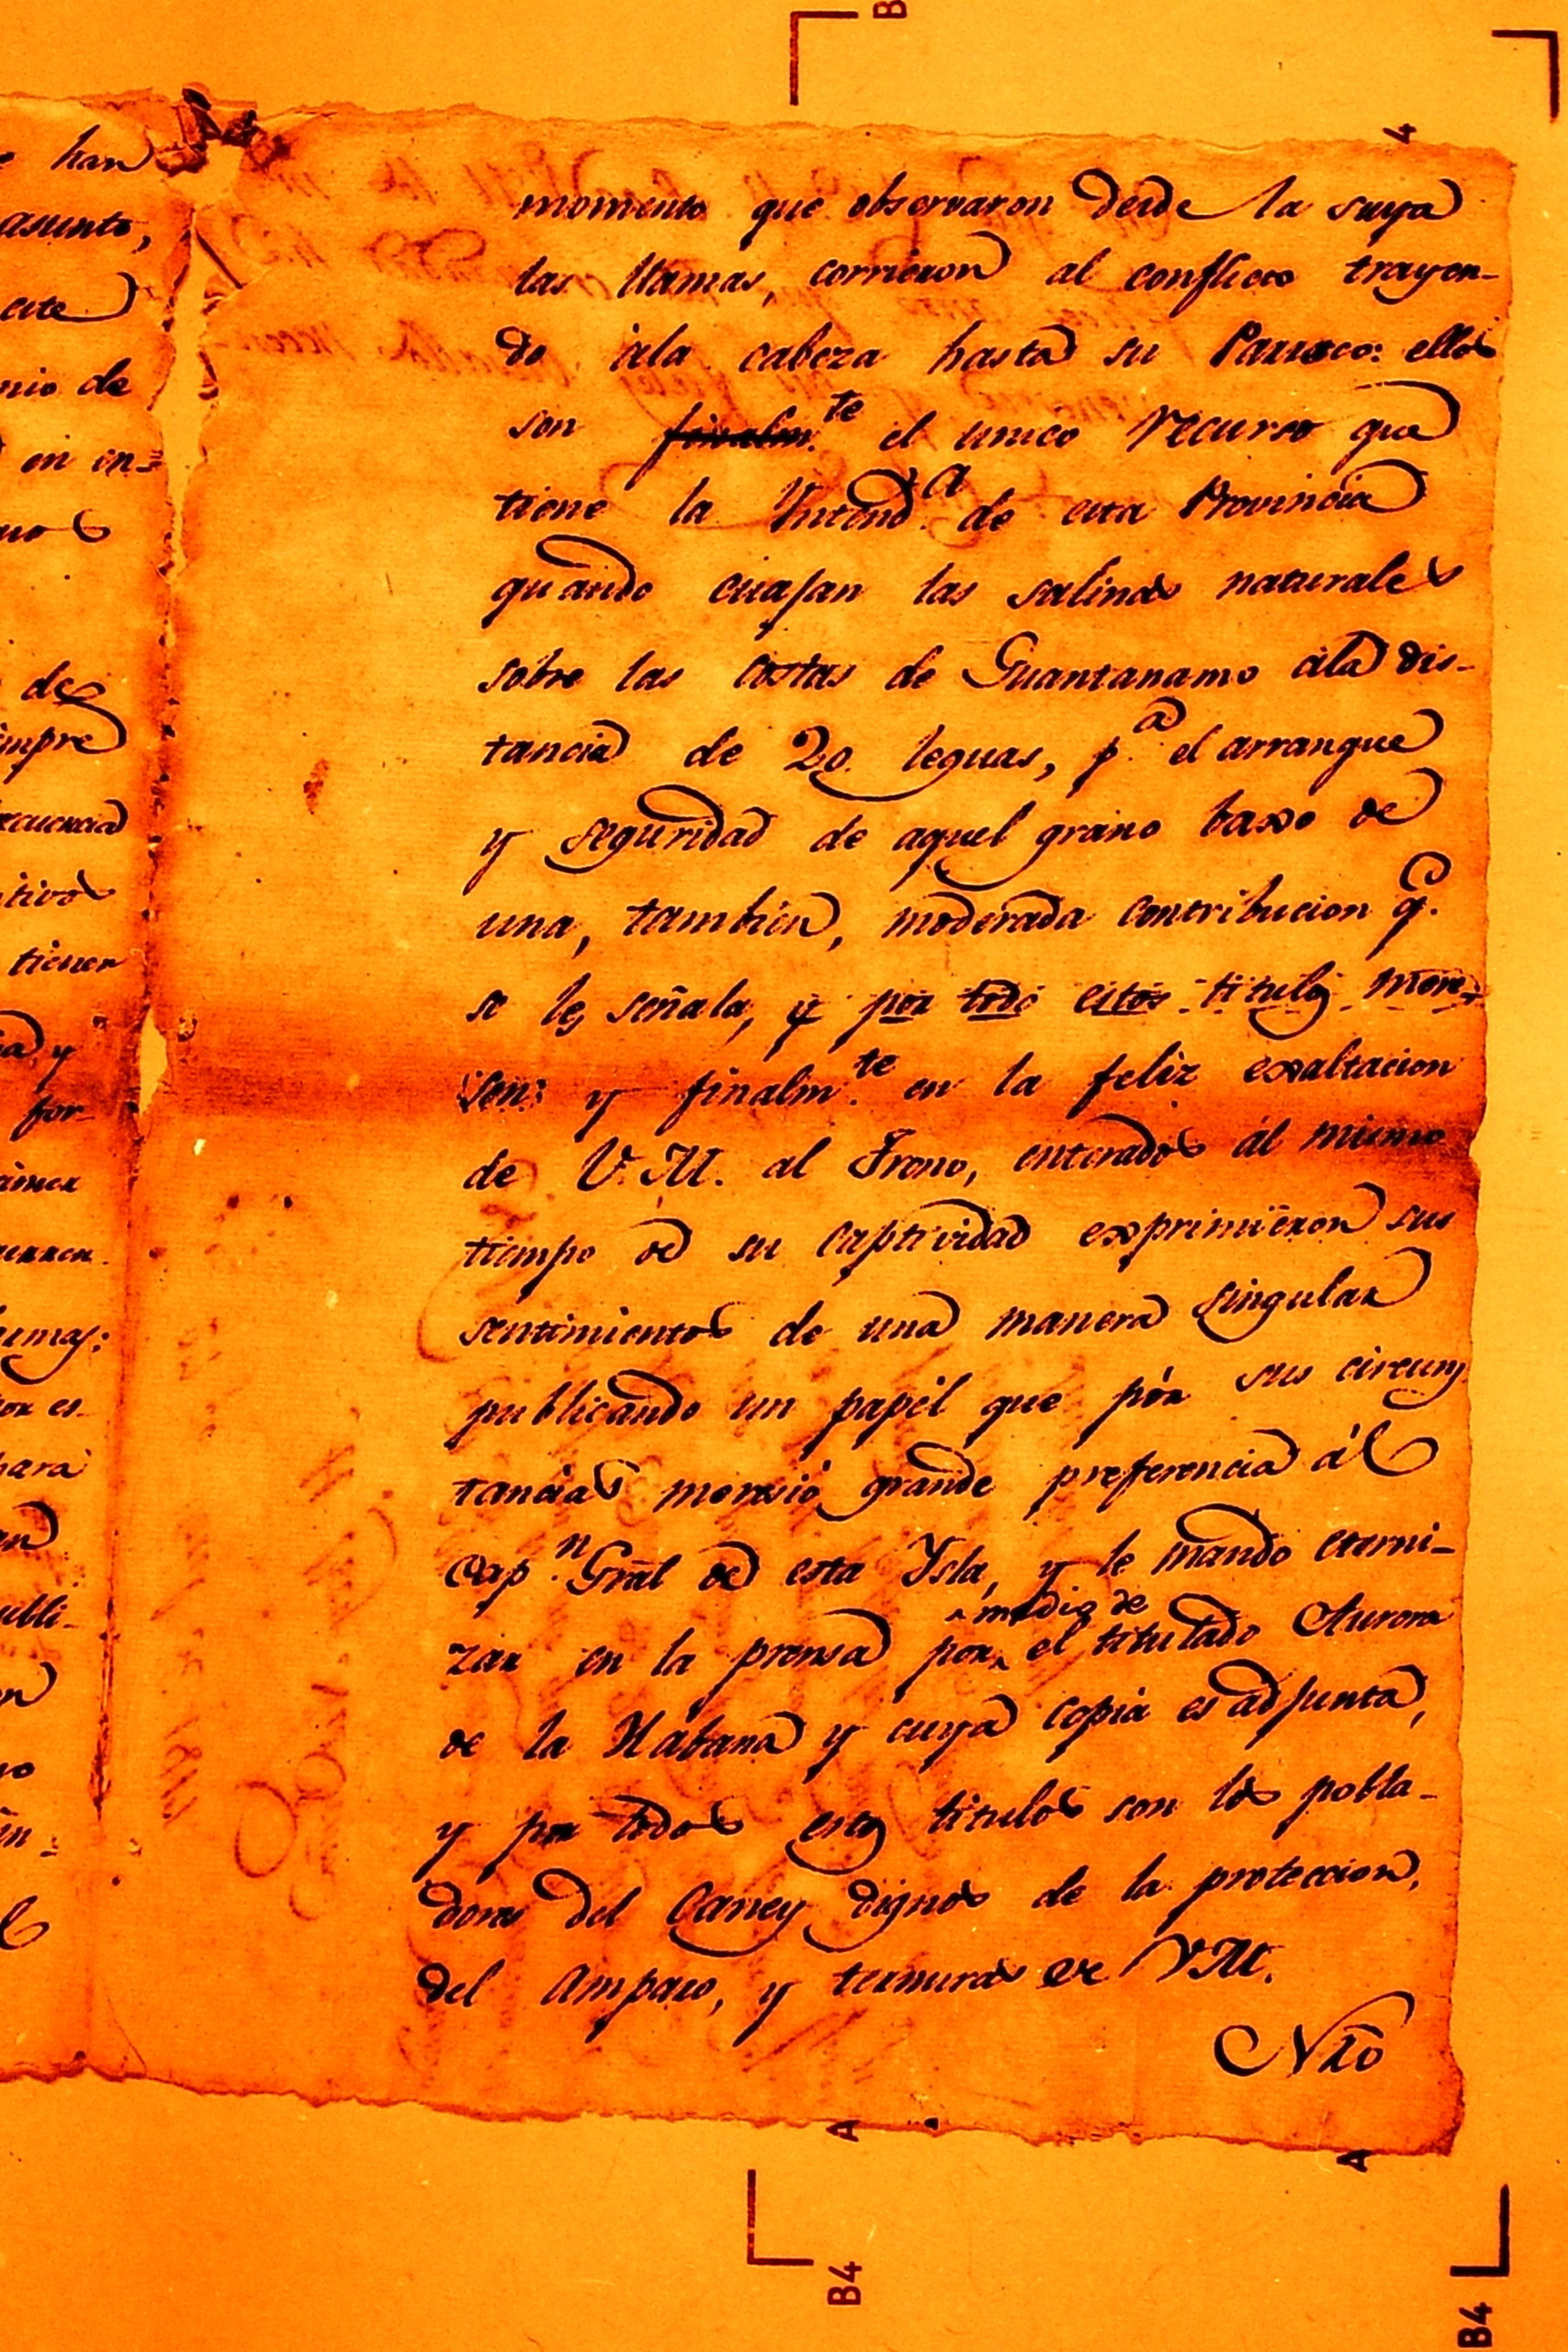 han
asunto,
este
nio de
en en=
nos
de
impre
tivos
tienen
y
for-
es-
para
ubli-
momento que observaron desde la suya
las llamas, corrieron al conflicto trayen-
do âla cabeza hasta su Parroco: ellos
son finalm.te el unico recurso que
tiene la Yntend.a de esta Provincia
quando cuajan las salinas naturales
sobre las costas de Guantanamo âla dis-
tancia de 20 leguas, p.a el arranque
y seguridad de aquel grano baxo de
una, tambien, moderada contribucion q.
se les señala, y por todo estos titulos mere-
sen: y finalm.te en la feliz exaltacion
de V.M. al Trono, enterados ál mismo
tiempo de su captividad exprimieron sus
sentimientos de una manera singular
publicando un papel que pór sus circuns
tancias meresió grande preferencia ál
Cap.n Grãl de esta Ysla, y le mando eterni-
medio de
zar en la prensa por el titulado Aurora
de la Habana y cuya copia es adjunta,
y por todos estos titulos son los pobla-
dores del Caney dignos de la proteccion,
del Amparo, y ternuras de V.M.
Nrõ
B
4
A
A
B4
B4